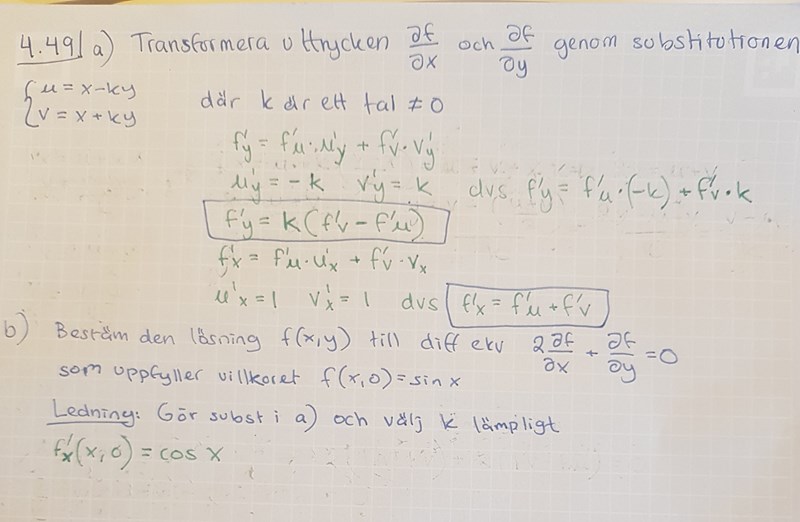 4.49 a) Transformera uttrycken ∂f/∂x och ∂f/∂y genom substitutionen
{u = x-ky
v = x + ky
där k är ett tal ≠ 0
f'y = f'u · u'y + f'v · v'y
u'y = -k v'y = k dvs f'y = f'u · (-k) + f'v · k
f'y = k(f'v - f'u)
f'x = f'u · u'x + f'v · vx
u'x = 1 v'x = 1 dvs f'x = f'u + f'v
b) Bestäm den lösning f(x,y) till diff ekv 2 ∂f/∂x + ∂f/∂y = 0
som uppfyller villkoret f(x,0) = sin x
Ledning: Gör subst i a) och välj k lämpligt
f'x(x,0) = cos x